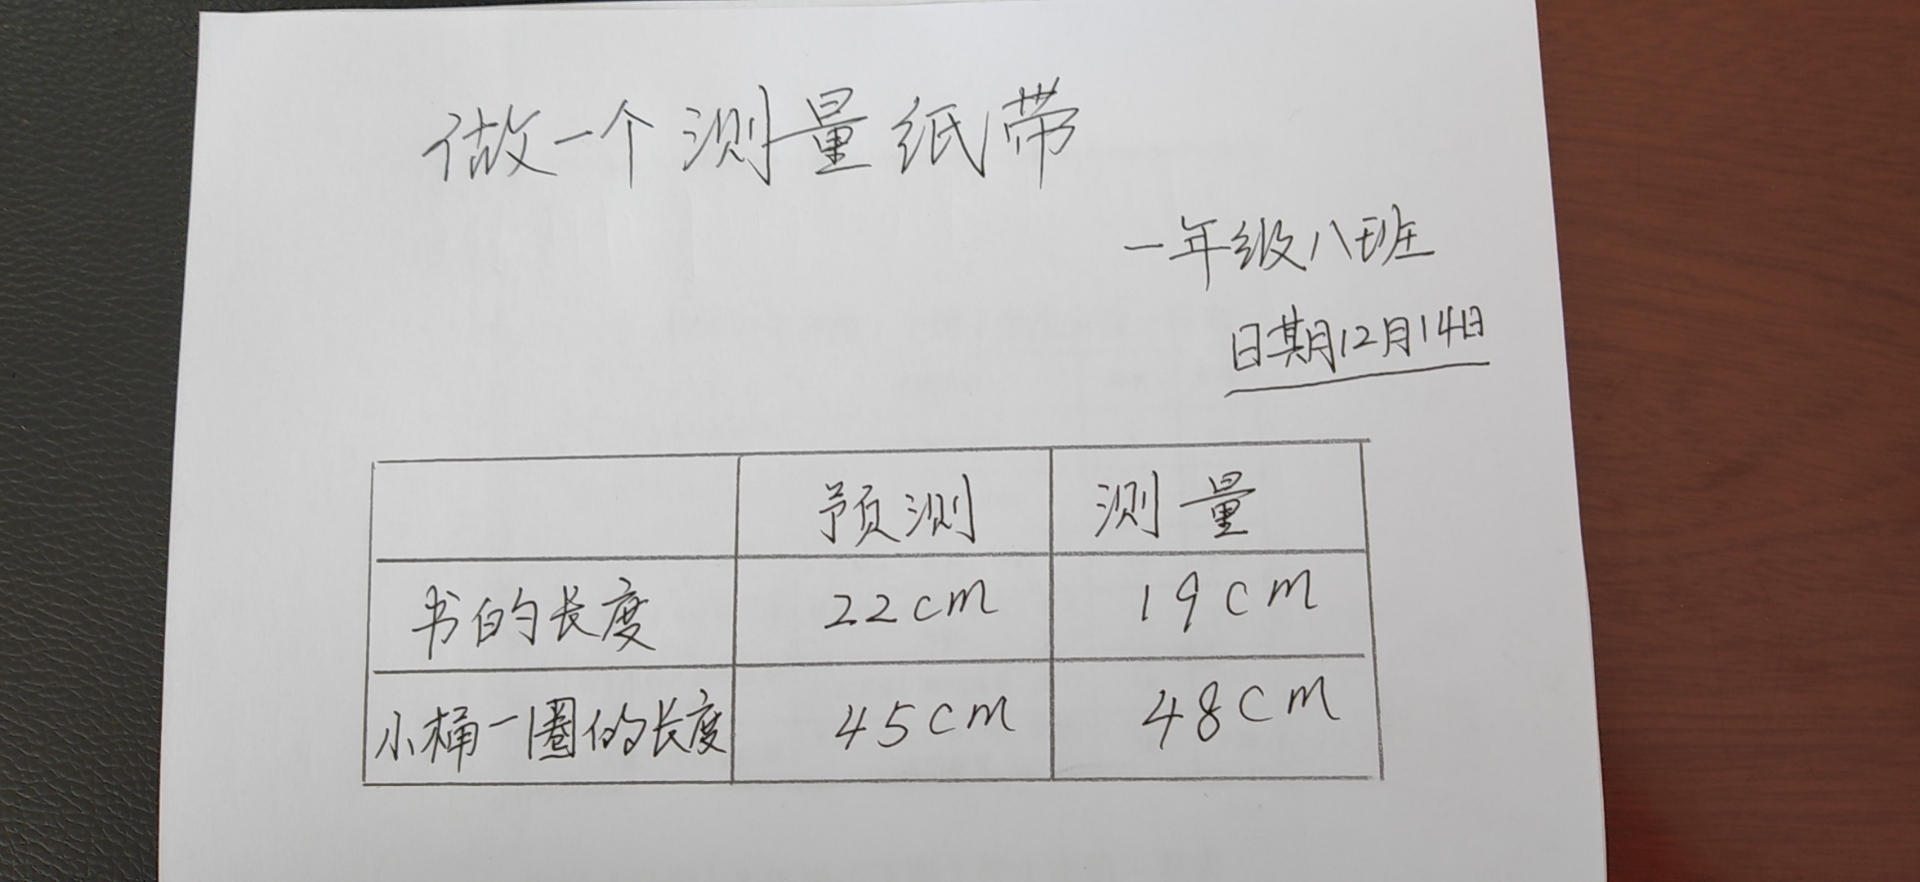 做一个测量纸带
一年级八班
日期12月14日
预测 测量
书的长度 22cm 19cm
小桶一圈的长度 45cm 48cm